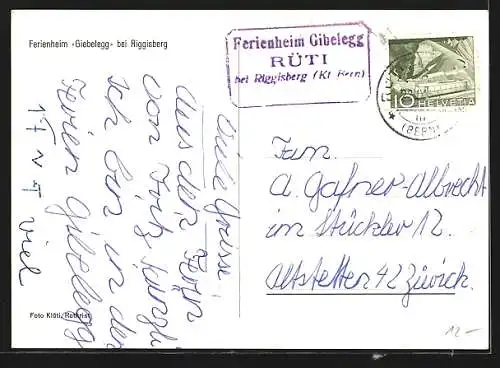 Ferienheim «Giebelegg» bei Riggisberg
Ferienheim Gibelegg
RÜTI
bei Riggisberg (Kt. Bern)
10 HELVETIA
(BERN)
Viele Grüsse
aus der
von Fritz
Ich bin in der
Ferien Gibelegg
viel
Fam.
A. Gafner-Albrecht
im Stückler 12.
Altstetten 42 Zürich.
Foto Klöti, Rothrist
12.-